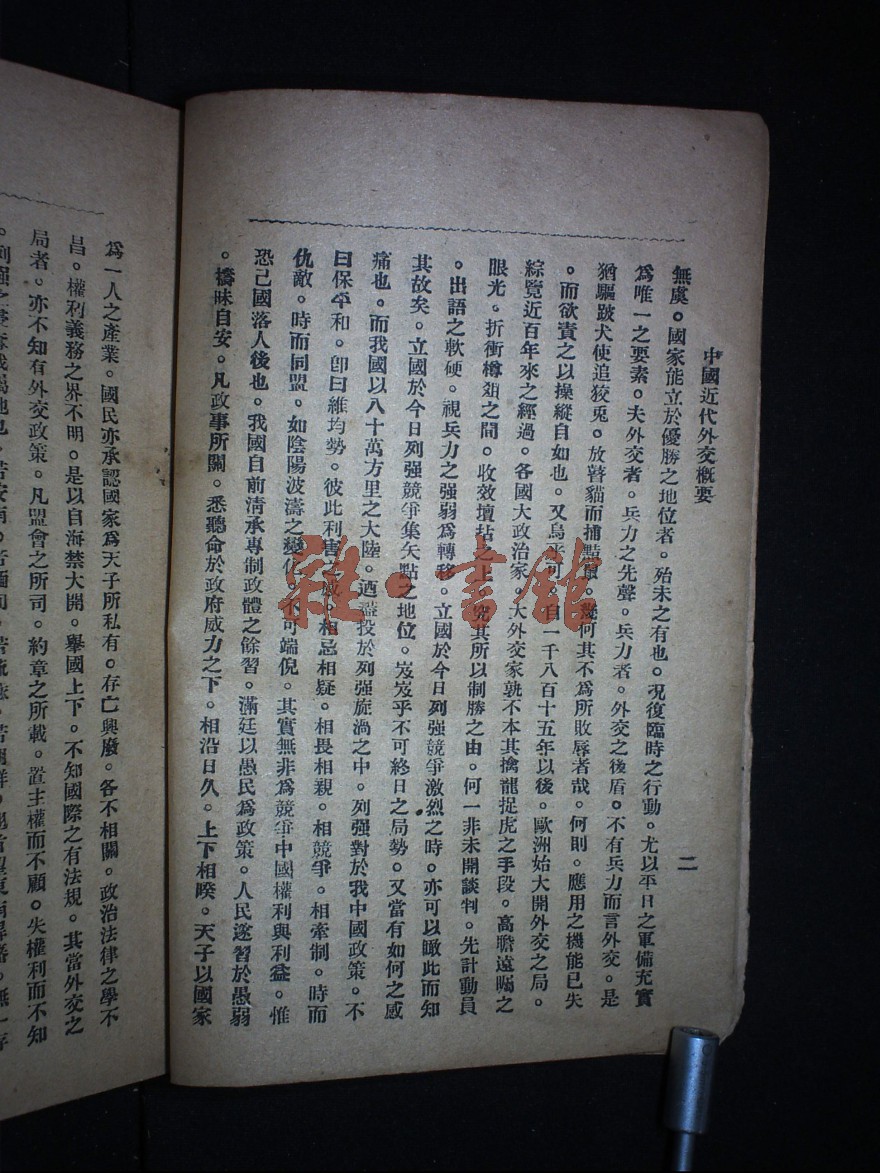 中國近代外交概要
二
無虞。國家能立於優勝之地位者。殆未之有也。況復臨時之行動。尤以平日之軍備充實
爲唯一之要素。夫外交者。兵力之先聲。兵力者。外交之後盾。不有兵力而言外交。是
猶驅跛犬使追狡兎。放瞽貓而捕黠鼠。幾何其不爲所敗辱者哉。何則。應用之機能已失
。而欲責之以操縱自如也。又烏乎可。自一千八百十五年以後。歐洲始大開外交之局。
綜覽近百年來之經過。各國大政治家。大外交家孰不本其擒龍捉虎之手段。高瞻遠矚之
眼光。折衝樽俎之間。收效壇坫之上。究其所以制勝之由。何一非未開談判。先計動員
。出語之軟硬。視兵力之强弱爲轉移。立國於今日列强競爭激烈之時。亦可以瞰此而知
其故矣。立國於今日列强競爭集矢點之地位。岌岌乎不可終日之局勢。又當有如何之感
痛也。而我國以八十萬方里之大陸。迺盡投於列强旋渦之中。列强對於我中國政策。不
曰保平和。卽曰維均勢。彼此利害之感。相忌相疑。相畏相親。相競爭。相牽制。時而
仇敵。時而同盟。如陰陽波濤之變化。不可端倪。其實無非爲競爭中國權利與利益。惟
恐己國落人後也。我國自前淸承專制政體之餘習。滿廷以愚民爲政策。人民遂習於愚弱
。檮昧自安。凡政事所關。悉聽命於政府威力之下。相沿日久。上下相暌。天子以國家
爲一人之產業。國民亦承認國家爲天子所私有。存亡興廢。各不相關。政治法律之學不
昌。權利義務之界不明。是以自海禁大開。舉國上下。不知國際之有法規。其當外交之
局者。亦不知有外交政策。凡盟會之所司。約章之所載。置主權而不顧。失權利而不知
雜·書館